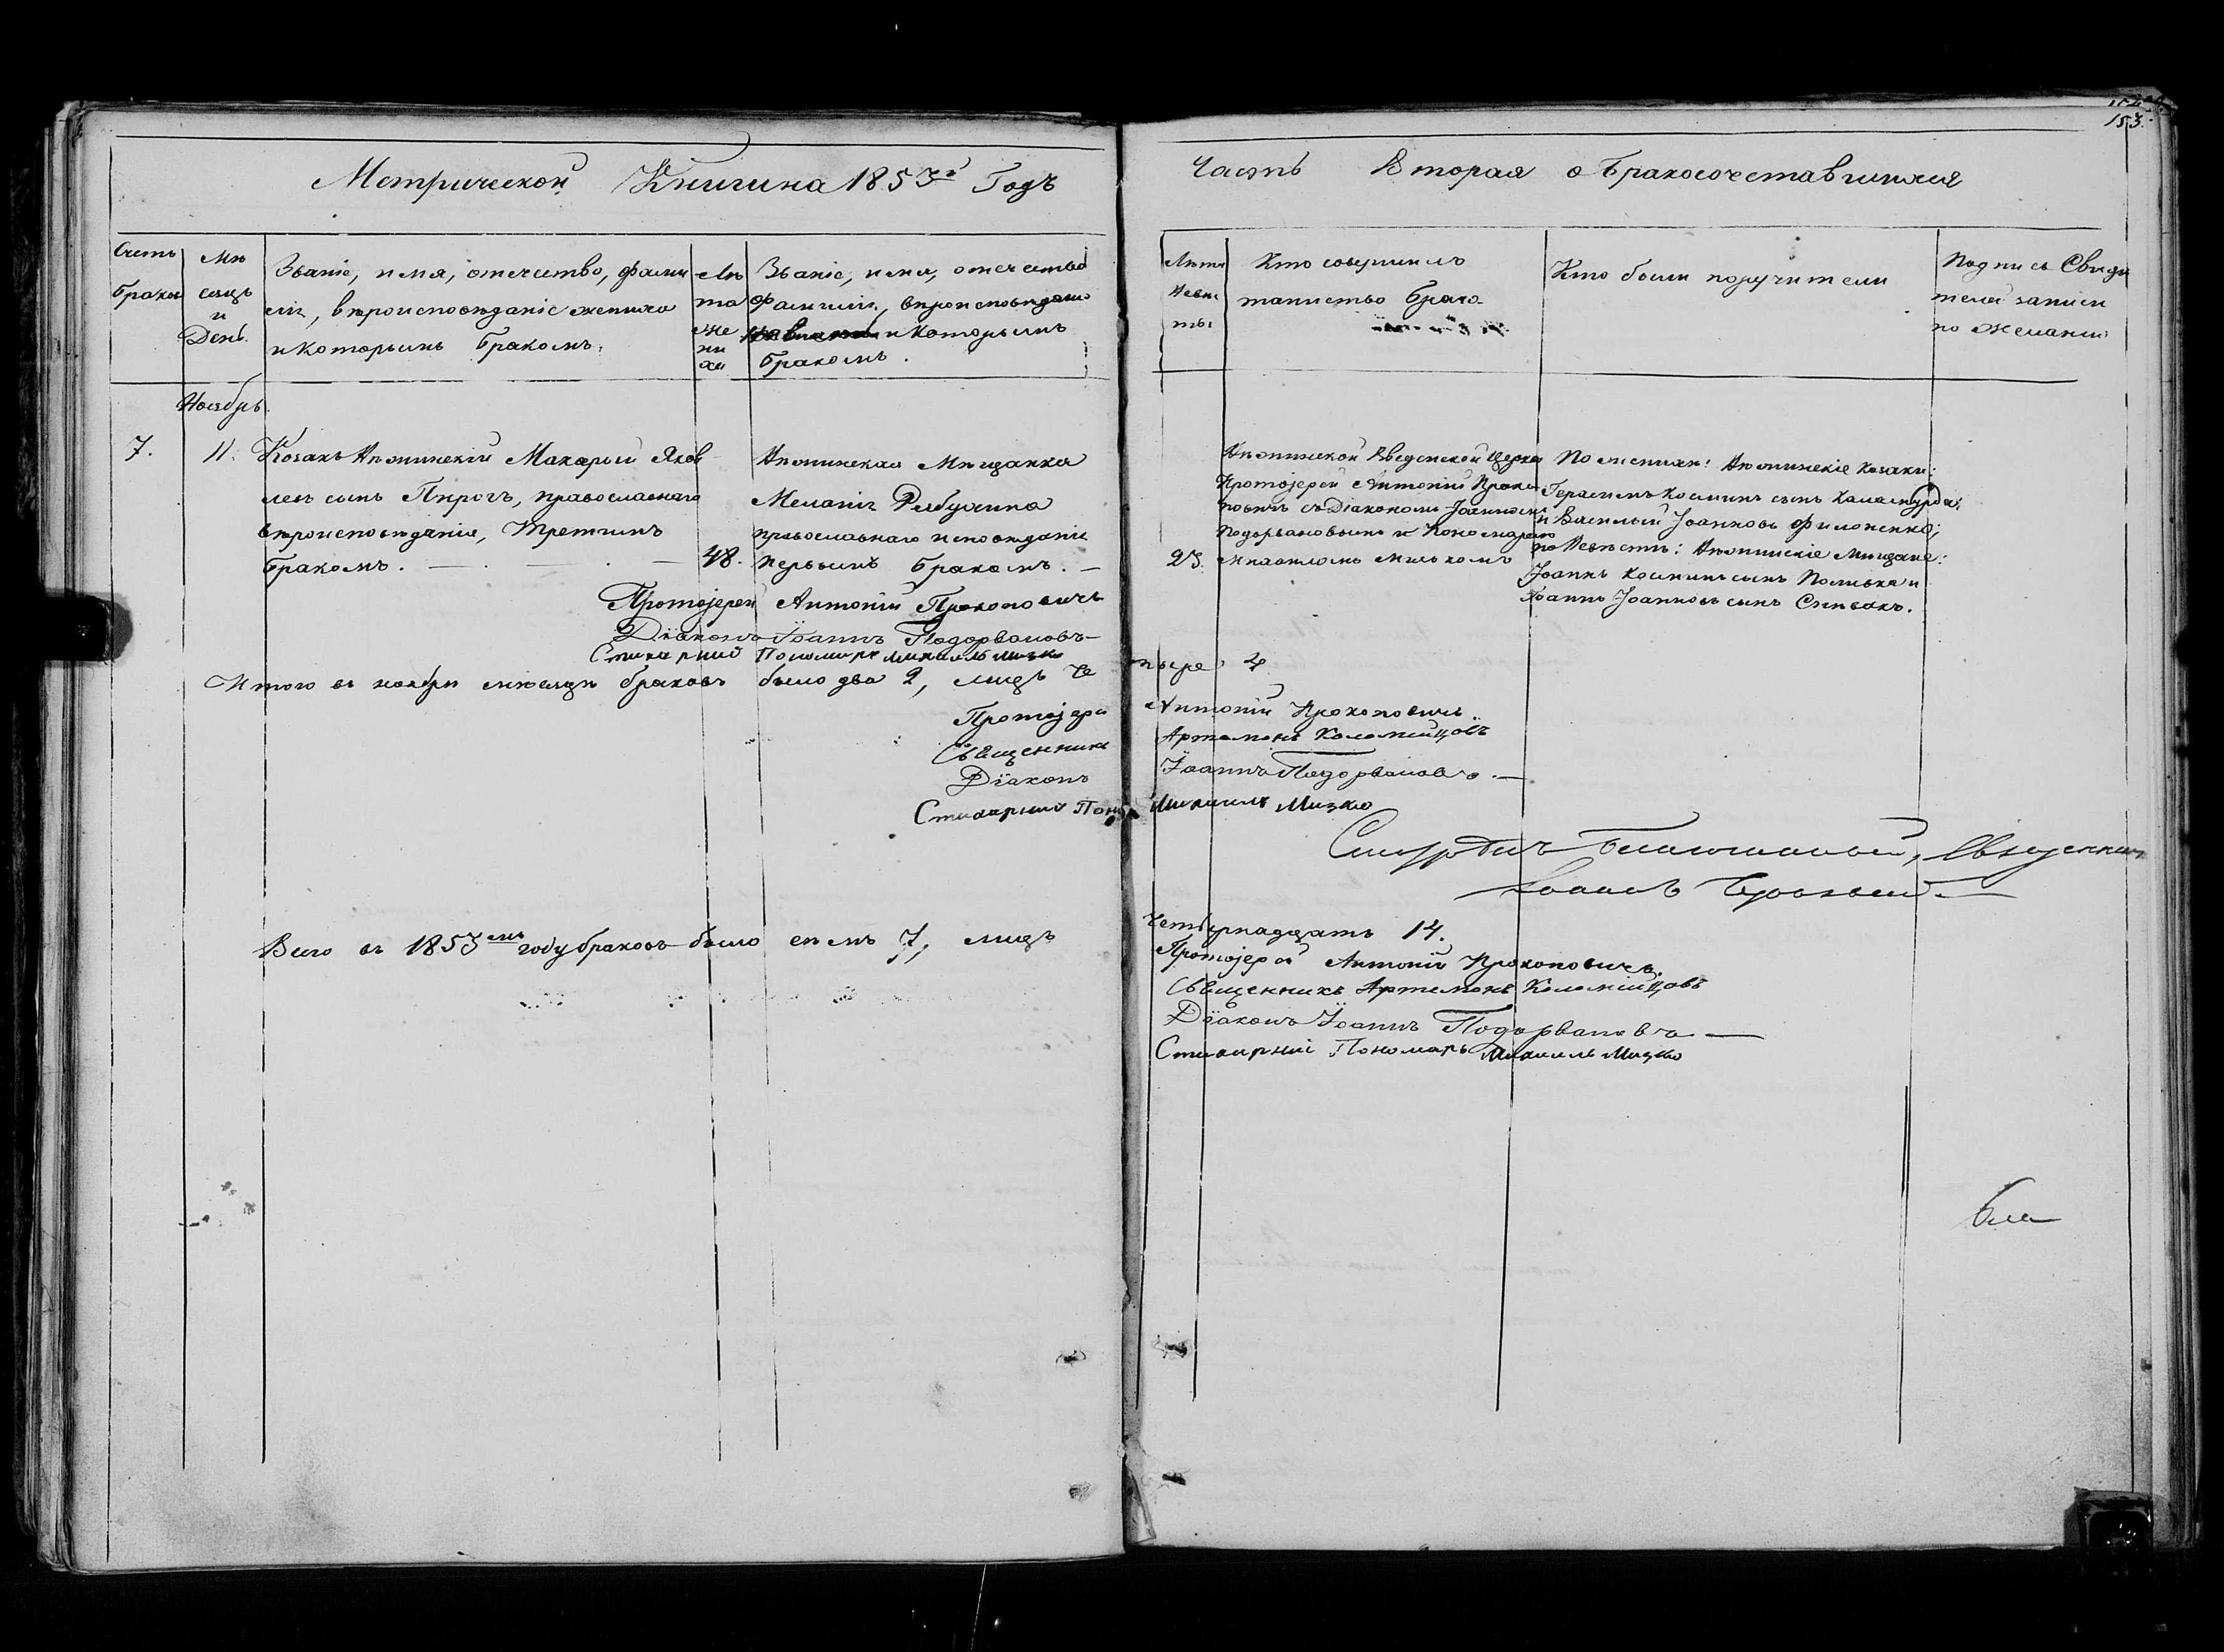 153.
Метрической Книги на 1853й Годъ
Часть Вторая о бракосочетавшихся
Счетъ браковъ
Мѣсяцъ и День.
Званіе, имя, отечество, фамилія, вѣроисповѣданіе жениха и которымъ бракомъ.
Лѣта жениха
Званіе, имя, отечество
фамилія, вѣроисповѣданіе
и которымъ
бракомъ.
Лѣта
Невѣсты
Кто совершилъ
таинство брака
Кто были поручители
Подпись Свидѣ
телей записи
по желанію
Ноябрь
7. 11.
Козакъ Макарій Яков
левъ сынъ Пирогъ, православнаго
вѣроисповѣданія, Третимъ
бракомъ. 48.
Мѣщанка
Меланія
православнаго исповѣданія
Первымъ бракомъ.
23.
Введенской Церкви
Протоіерей Антоній Проко
повичъ съ Діакономъ Іоанномъ
Подорвановымъ и Пономаремъ
Михаиломъ
По женихѣ: козаки:
Герасимъ Косминъ сынъ
и Василій Іоанновъ Филоненко;
по Невѣстѣ: Мѣщане:
Іоаннъ Косминъ сынъ и
Іоаннъ Іоанновъ сынъ Спѣвакъ.
Протоіерей Антоній Прокоповичъ
Діаконъ Іоаннъ Подорвановъ
Стихарный Пономарь Михаилъ Мизко
Итого въ ноябрѣ мѣсяцѣ браковъ было два 2, лицъ че
тыре 4
Протоіерей Антоній Прокоповичъ
Священникъ Артемонъ Коломійцовъ
Діаконъ Іоаннъ Подорвановъ
Стихарный Поном Михаилъ Мизко
Священникъ
Іоаннъ
Всего въ 1853мъ году браковъ было семь 7, лицъ
Четырнадцать 14.
Протоіерей Антоній Прокоповичъ.
Священникъ Артемонъ Коломійцовъ
Діаконъ Іоаннъ Подорвановъ
Стихарный Пономарь Михаилъ Мизко